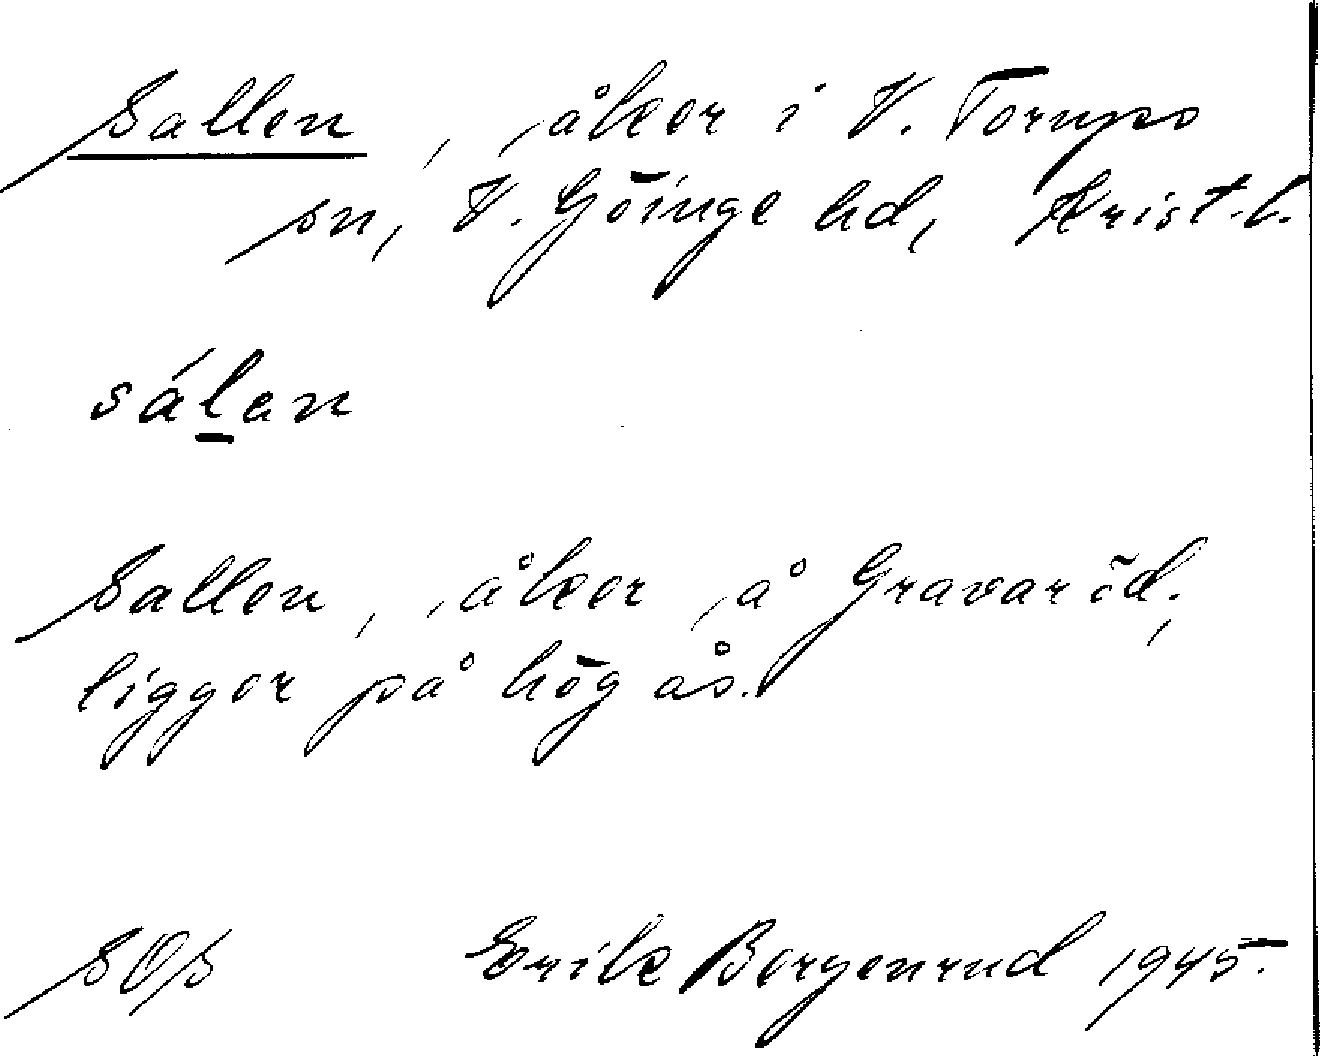 Sallen, åker i V. Torups
sn, V. Göinge hd, Krist.l.
sál̲an
Sallen, åker å Gravaröd,
ligger på hög ås.
SOS Erik Borgenrud 1945.